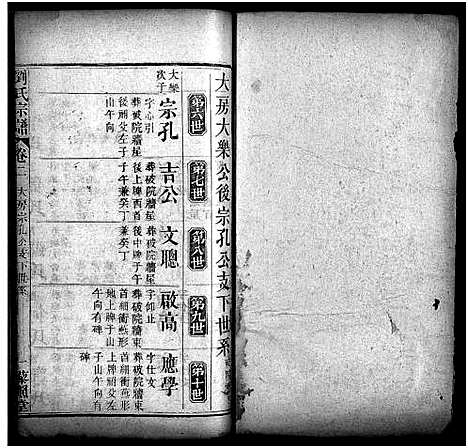 大房大樂公後宗孔公支下世系
第六世
第七世
第八世
第九世
第十世
大樂
次子
宗孔
字心引
葬破院牆星
後祔父左子
山午向
吉公
葬破院牆星
後上牌酉首
子午兼癸丁
文聰
葬破院牆星
後中牌子午
兼癸丁
啟高
字仰止
葬破院牆東
首細衝形
地上牌子山
午向有碑
應學
字仕文
葬破院牆東
首細衝形
上牌祔父左
子山午向有
碑
劉氏宗譜
卷二
大房宗孔公支下世系
一